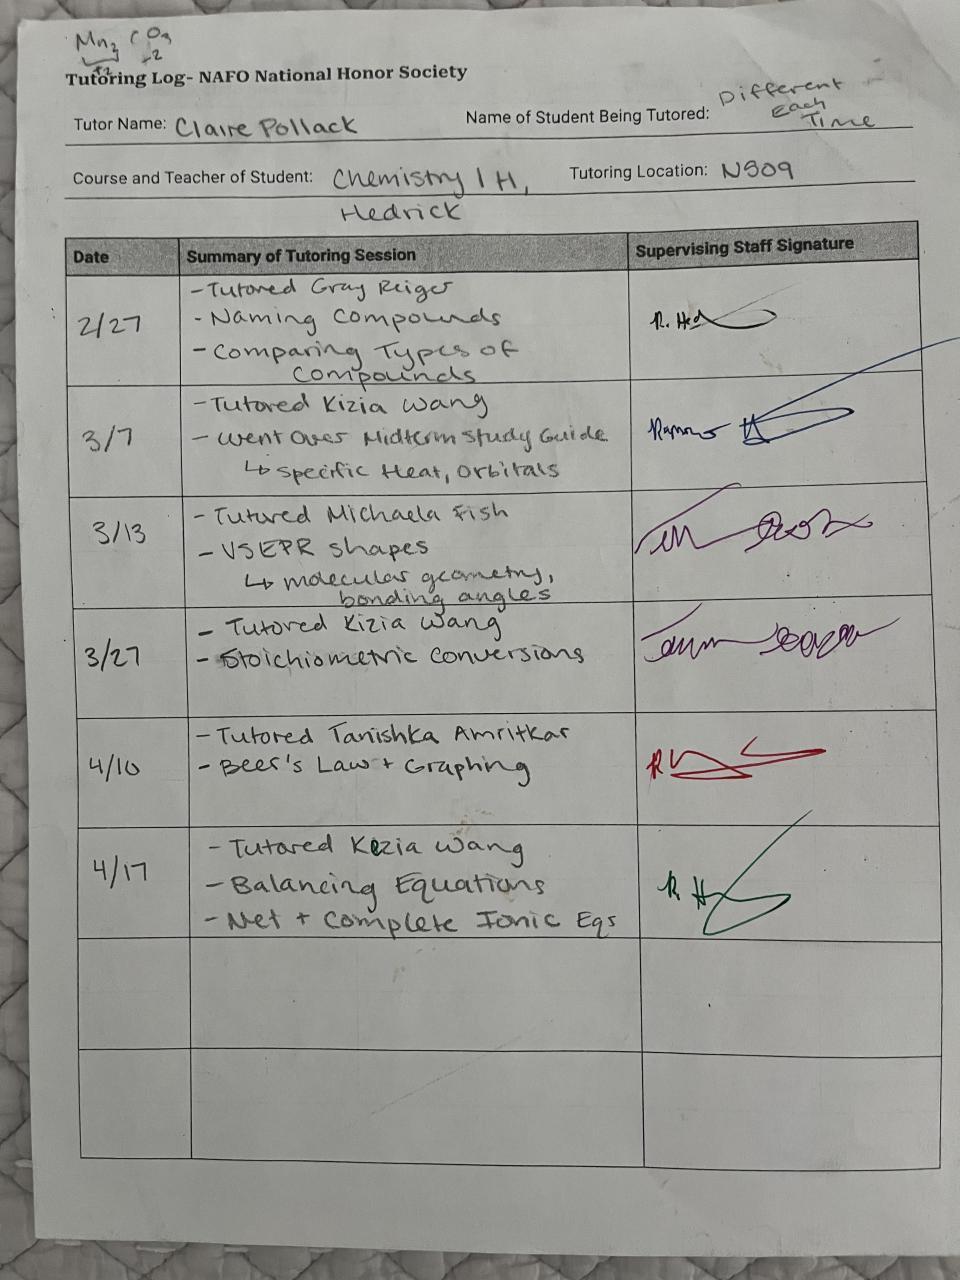 Mn2 CO3
+2 -2
Tutoring Log- NAFO National Honor Society
Tutor Name: Claire Pollack
Name of Student Being Tutored: Different Each Time
Course and Teacher of Student: Chemistry 1 H, Hedrick
Tutoring Location: N509
Date Summary of Tutoring Session Supervising Staff Signature
2/27
- Tutored Gray Reiger
- Naming Compounds
- Comparing Types of
Compounds
R. Hed
3/7
- Tutored Kizia Wang
- Went Over Midterm Study Guide
↳ Specific Heat, Orbitals
3/13
- Tutored Michaela Fish
- VSEPR shapes
↳ molecular geometry,
bonding angles
3/27
- Tutored Kizia Wang
- Stoichiometric Conversions
4/10
- Tutored Tanishka Amritkar
- Beer's Law + Graphing
4/17
- Tutored Kezia Wang
- Balancing Equations
- Net + Complete Ionic Eqs
R H